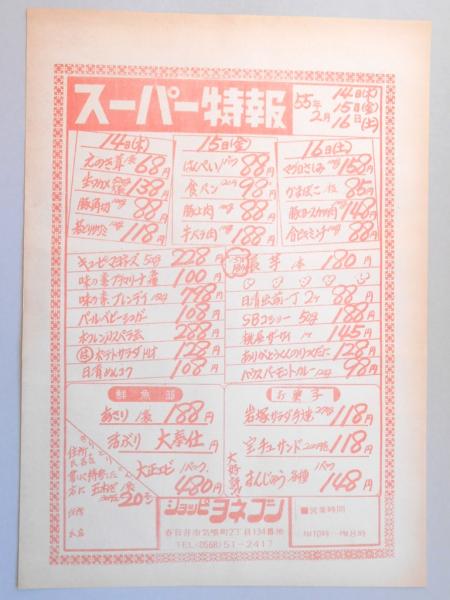 スーパー特報
55年2月
14日(木)
15日(金)
16日(土)
14日(木)
えのき茸 1袋 68円
生ワカメ 138円
豚角切 100g 88円
若どりササミ 100g 118円
15日(金)
はんぺい 1パック 88円
食パン 98円
豚上肉 100g 88円
牛バラ肉 100g 188円
16日(土)
マグロさしみ 100g 158円
かまぼこ 1枚 85円
豚ロースカツ肉 100g 148円
合ビキミンチ 100g 88円
キューピーマヨネーズ 500g 228円
味の素 100円
味の素 ブレンディ 798円
パールベビーシュガー 108円
288円
ポテトサラダ 128円
日清めんコク 108円
長芋 1本 180円
日清出前一丁 2ケ 88円
SBコショー 188円
桃屋ザーサイ 145円
128円
ハウスバーモントカレー 98円
鮮魚部
あさり 1袋 188円
活ぶり 大奉仕
大正エビ 1パック 480円
お菓子
岩塚サラダ 118円
118円
大好評!
まんじゅう各種 1パック 148円
きりとり
住所
氏名を
書いて持参した
方に 玉ねぎ 1袋
20円
住所
氏名
ショッピ ヨネブン
春日井市気噴町2丁目134番地
TEL(0568)51-2417
■営業時間
AM10時−PM8時